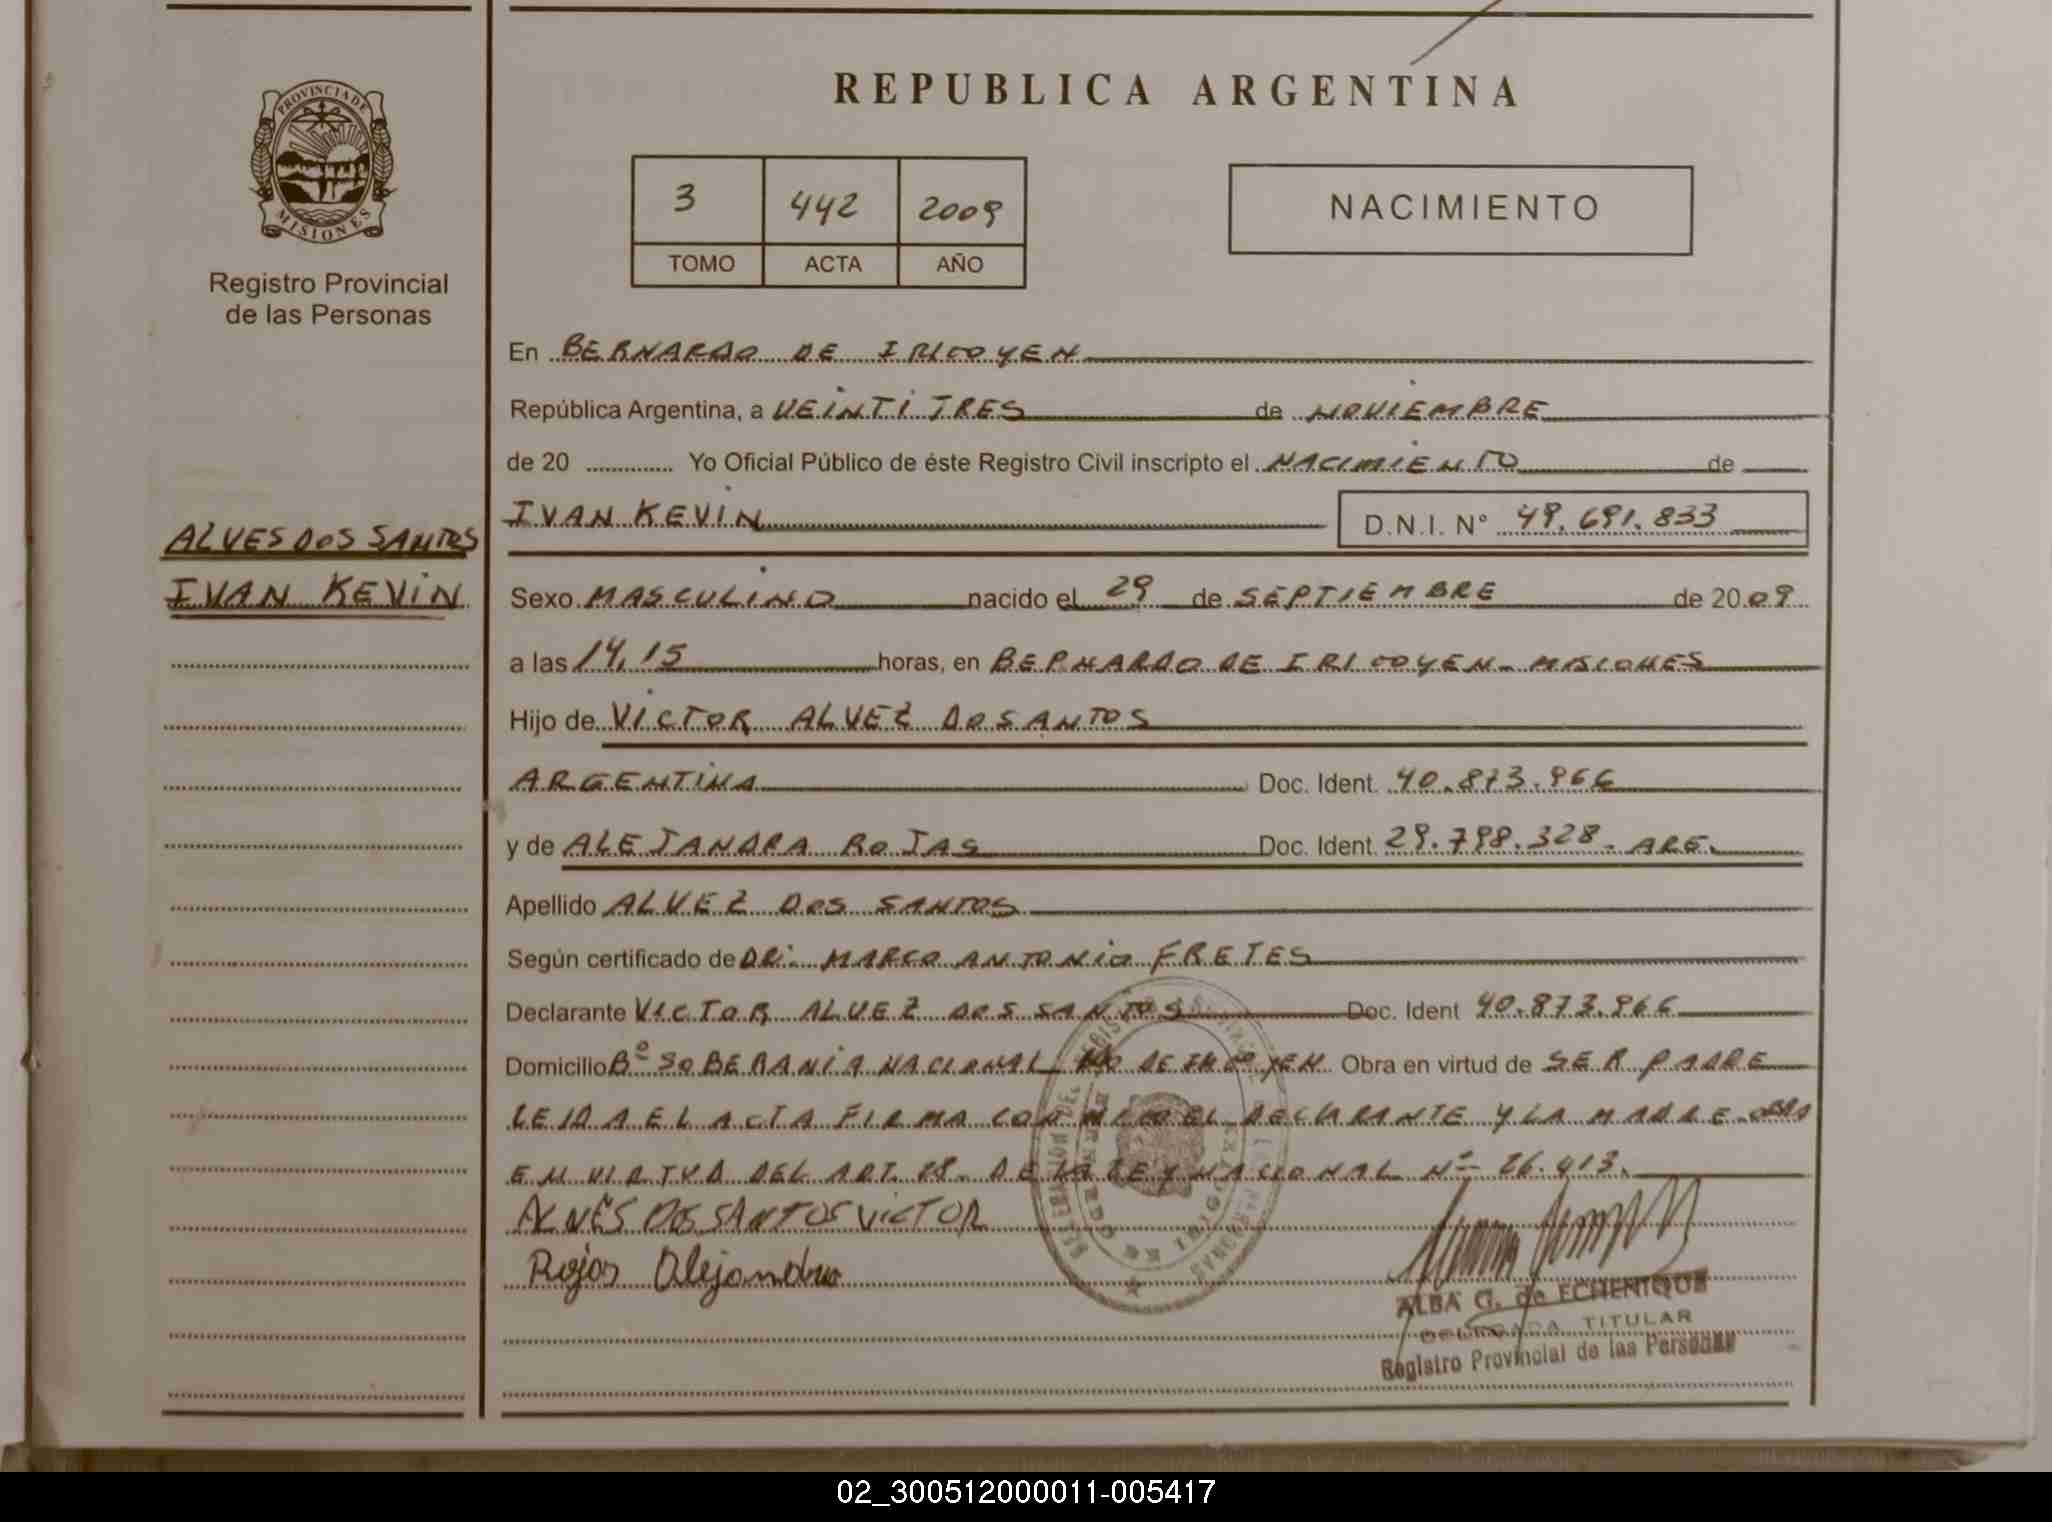 PROVINCIA DE
MISIONES
Registro Provincial
de las Personas
ALVES DOS SANTOS
IVAN KEVIN
REPUBLICA ARGENTINA
3 442 2009
TOMO ACTA AÑO
NACIMIENTO
En BERNARDO DE IRIGOYEN
República Argentina, a VEINTITRES de NOVIEMBRE
de 20 ............. Yo Oficial Público de éste Registro Civil inscripto el NACIMIENTO de
IVAN KEVIN D.N.I. N° 49.691.833
Sexo MASCULINO nacido el 29 de SEPTIEMBRE de 2009
a las 14,15 horas, en BERNARDO DE IRIGOYEN - MISIONES
Hijo de VICTOR ALVEZ DOSANTOS
ARGENTINA Doc. Ident. 40.873.966
y de ALEJANDRA ROJAS Doc. Ident. 29.798.328. ARG.
Apellido ALVEZ DOS SANTOS
Según certificado de DR. MARCO ANTONIO FRETES
Declarante VICTOR ALVEZ DOS SANTOS Doc. Ident 40.873.966
Domicilio Bº SOBERANIA NACIONAL DE Obra en virtud de SER PADRE
LEIDA EL ACTA FIRMA CONMIGO EL DECLARANTE Y LA MADRE - OBRA
EN VIRTUD DEL ART. 28. DE LA LEY NACIONAL Nº 26.413.
ALVES DOS SANTOS VICTOR
Rojas Alejandra
ALBA G. de ECHENIQUE
DELEGADA TITULAR
Registro Provincial de las Personas
02_300512000011-005417